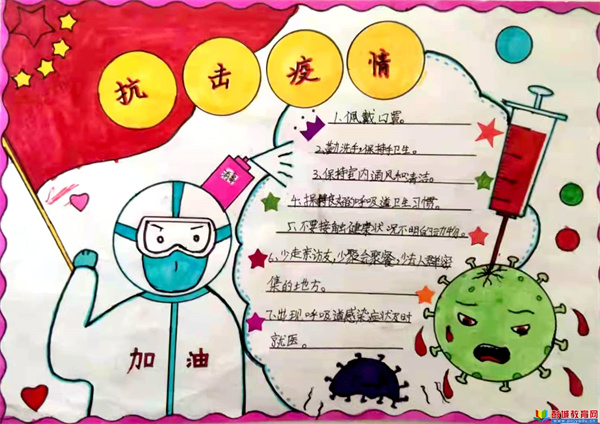 抗击疫情
消毒
1.佩戴口罩。
2.勤洗手,保持手卫生。
3.保持室内通风和清洁。
4.保持良好的呼吸道卫生习惯。
5.不要接触健康状况不明的动物。
6.少走亲访友,少聚会聚餐,少去人群密
集的地方。
7.出现呼吸道感染症状及时
就医。
加油
城教育网